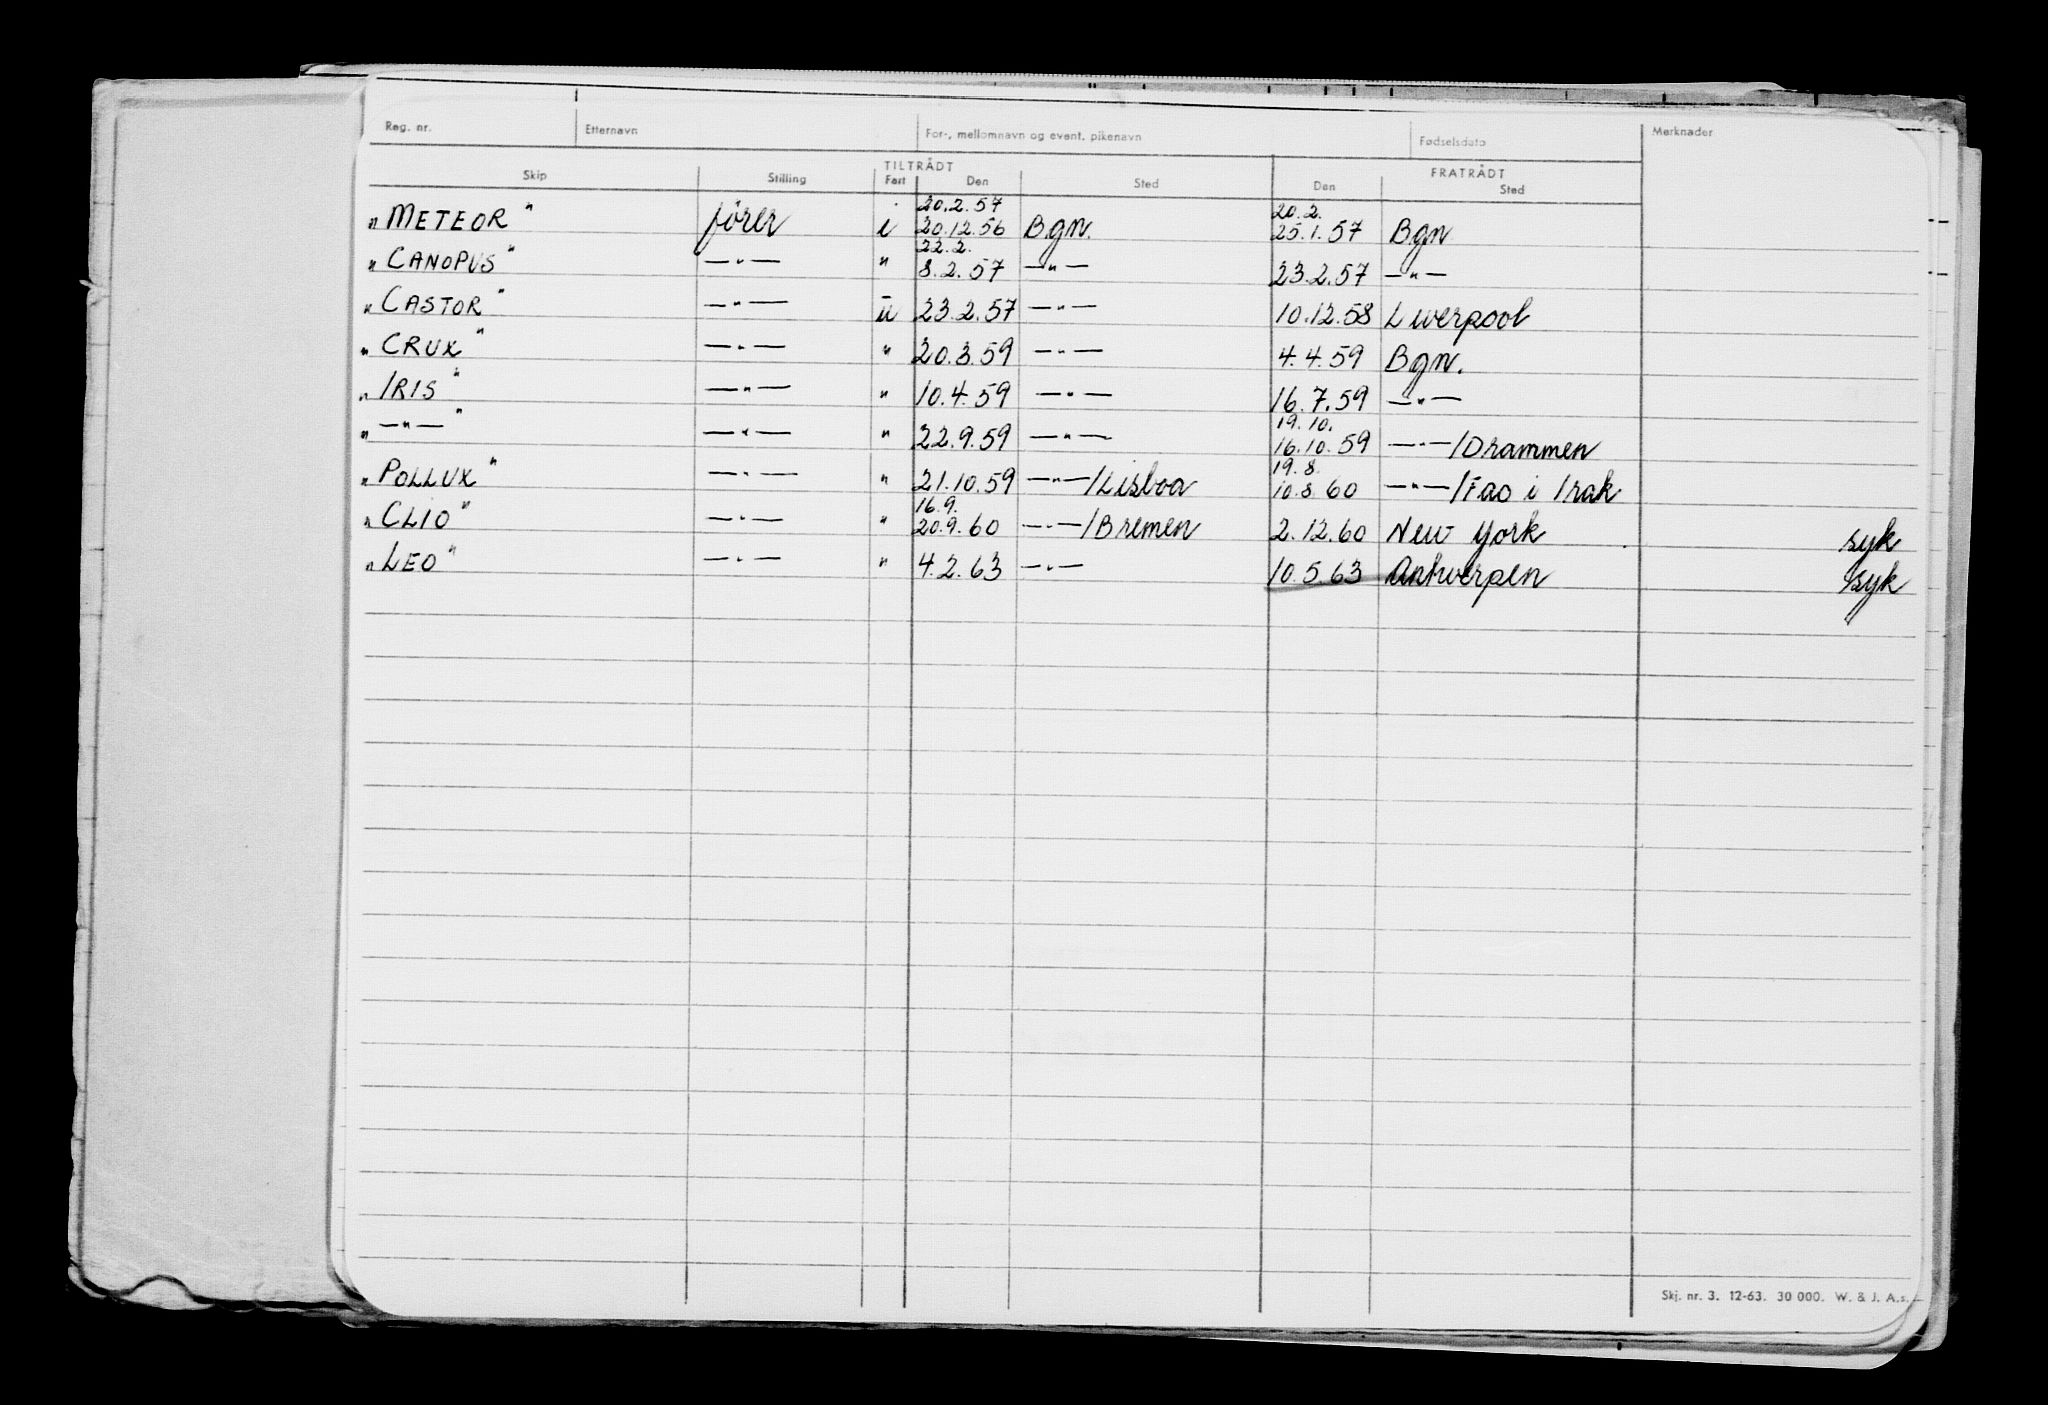 Reg. nr. Etternavn For-, mellomnavn og event. pikenavn Fødselsdato Merknader
TILTRÅDT FRATRÅDT
Skip Stilling Fart Den Sted Den Sted
20.2.57 20.2.
„METEOR" fører i 20.12.56 Bgn. 25.1.57 Bgn
22.2.
„CANOPUS" —"— " 8.2.57 —"— 23.2.57 —"—
„CASTOR" —"— u 23.2.57 —"— 10.12.58 Liverpool
„CRUX" —"— " 20.3.59 —"— 4.4.59 Bgn.
„IRIS" —"— " 10.4.59 —"— 16.7.59 —"—
19.10.
„—"—" —"— " 22.9.59 —"— 16.10.59 —"—/Drammen
19.8.
„POLLUX" —"— " 21.10.59 —"—/Lisboa 10.8.60 —"—/Fao i Irak
16.9.
„CLIO" —"— " 20.9.60 —"—/Bremen 2.12.60 New York syk
„LEO" —"— " 4.2.63 —"— 10.5.63 Antwerpen syk
Skj. nr. 3. 12-63. 30 000. W. & J. A.s.